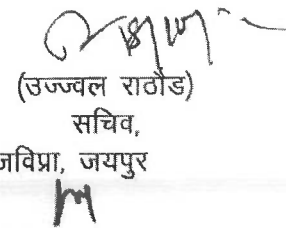 (उज्ज्वल राठौड)
सचिव,
जविप्रा, जयपुर